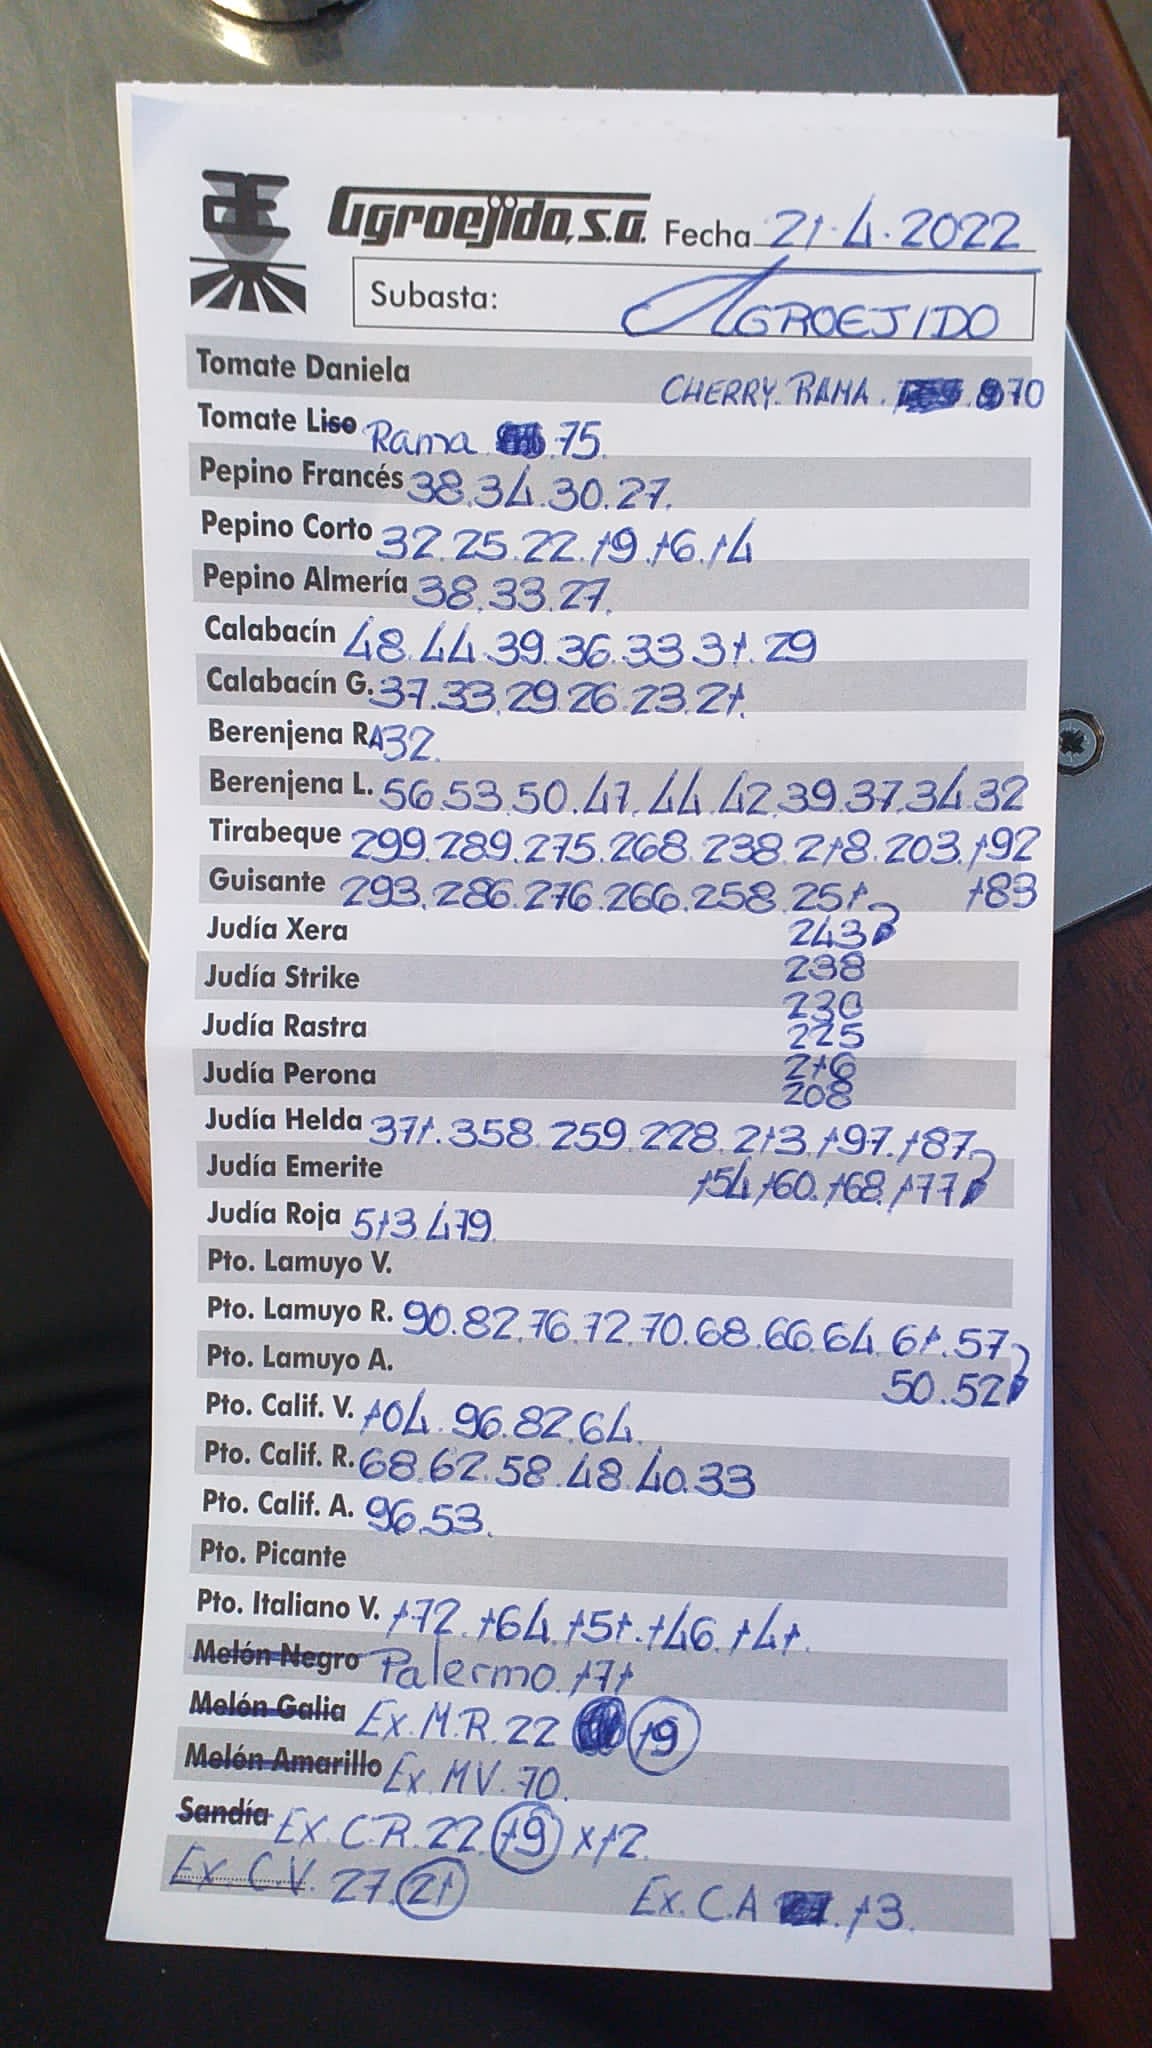 Agroejido, S.A. Fecha 21.4.2022
Subasta: AGROEJIDO
Tomate Daniela CHERRY. RAMA. 70
Tomate Liso Rama 75.
Pepino Francés 38.34.30.27.
Pepino Corto 32.25.22.19.16.14
Pepino Almería 38.33.27.
Calabacín 48.44.39.36.33.31.29
Calabacín G. 37.33.29.26.23.21.
Berenjena RA 32.
Berenjena L. 56.53.50.47.44.42.39.37.34.32
Tirabeque 299.289.275.268.238.218.203.192
Guisante 293.286.276.266.258.251. 183
Judía Xera 243
Judía Strike 238
230
Judía Rastra 225
Judía Perona 216
208
Judía Helda 371.358.259.228.213.197.187
Judía Emerite 154.160.168.177
Judía Roja 513.479
Pto. Lamuyo V.
Pto. Lamuyo R. 90.82.76.72.70.68.66.64.61.57
Pto. Lamuyo A. 50.52
Pto. Calif. V. 104.96.82.64.
Pto. Calif. R. 68.62.58.48.40.33
Pto. Calif. A. 96.53.
Pto. Picante
Pto. Italiano V. 172.164.151.146.141.
Melón Negro Palermo. 171
Melón Galia Ex. M.R. 22 19
Melón Amarillo Ex. MV. 70.
Sandía Ex. C.R. 22. 19 x12.
Ex. C.V. 27. 21 Ex. C.A 13.